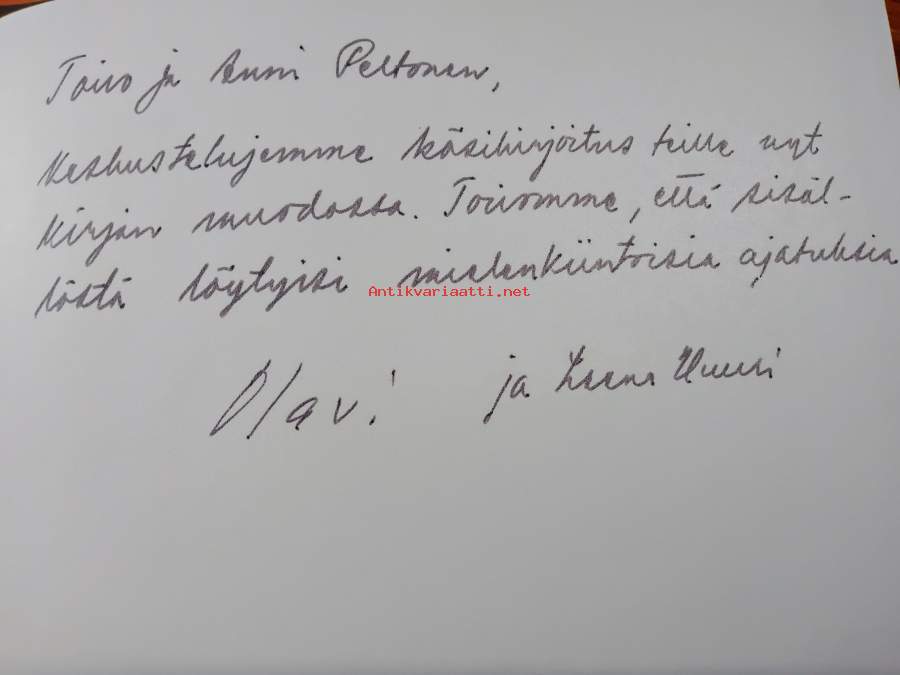 Toivo ja Anni Peltonen,
Keskustelujemme käsikirjoitus teille nyt
kirjan muodossa. Toivomme, että sisäl-
löstä löytyisi mielenkiintoisia ajatuksia
Antikvariaatti.net
Olavi ja Leena Uuusi